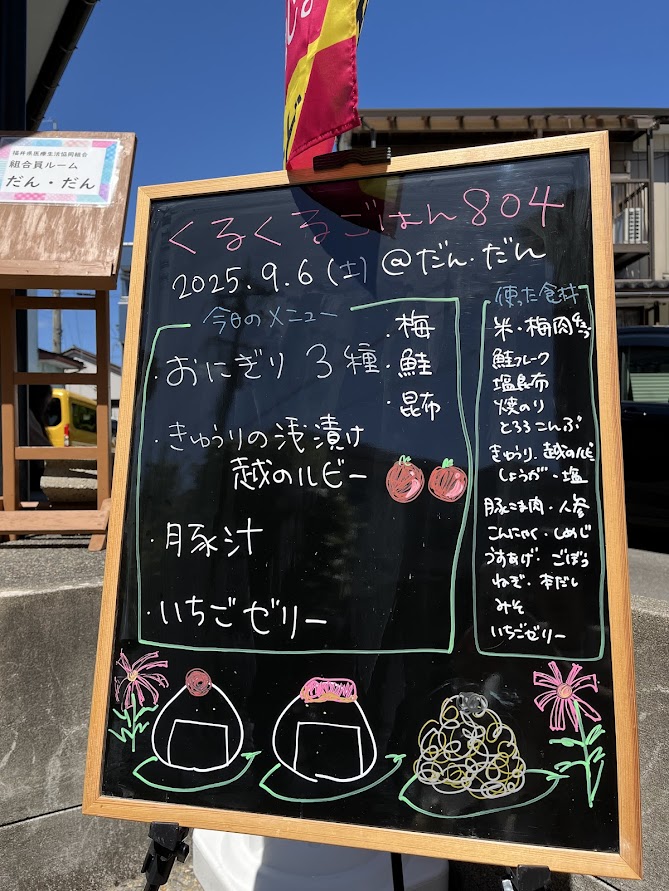 福井県医療生活協同組合
組合員ルーム
だん・だん
くるくるごはん804
2025.9.6(土)@だん・だん
今日のメニュー
・おにぎり 3種
・梅
・鮭
・昆布
・きゅうりの浅漬け
越のルビー
・豚汁
・いちごゼリー
使った食材
米・梅肉
鮭フレーク
塩昆布
焼のり
とろろこんぶ
きゅうり・越のルビー
しょうが・塩
豚こま肉・人参
こんにゃく・しめじ
うすあげ・ごぼう
ねぎ・本だし
みそ
いちごゼリー